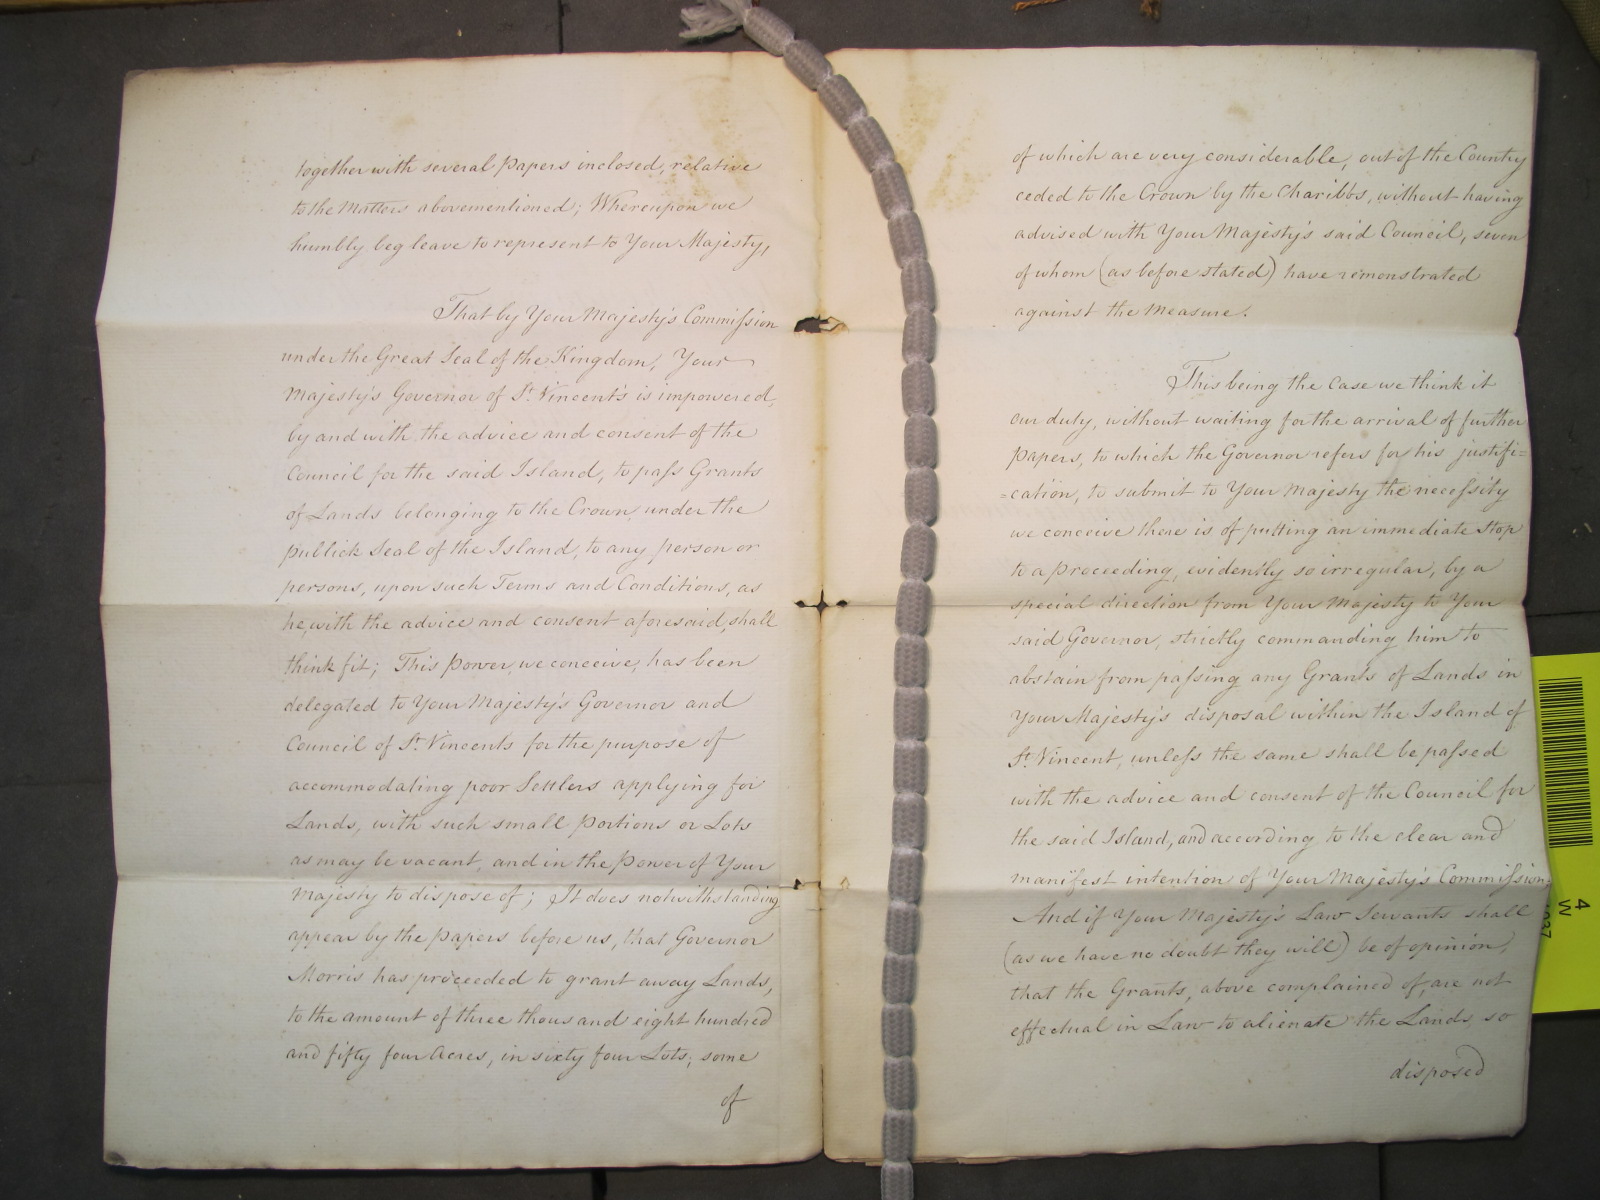 together with several Papers inclosed, relative
to the Matters abovementioned; Whereupon we
humbly beg leave to represent to Your Majesty,
That by Your Majesty's Commission
under the Great Seal of the Kingdom, Your
Majesty's Governor of St. Vincent's is impowered,
by and with the advice and consent of the
Council for the said Island, to pass Grants
of Lands belonging to the Crown, under the
Publick Seal of the Island, to any person or
persons, upon such Terms and Conditions, as
he, with the advice and consent aforesaid, shall
think fit; This Power, we conceive, has been
delegated to Your Majesty's Governor and
Council of St. Vincents for the purpose of
accommodating poor Settlers applying for
Lands, with such small Portions or Lots
as may be vacant, and in the Power of Your
Majesty to dispose of; It does notwithstanding
appear by the Papers before us, that Governor
Morris has proceeded to grant away Lands,
to the amount of three thousand eight hundred
and fifty four Acres, in sixty four Lots; some
of
of which are very considerable, out of the Country
ceded to the Crown by the Charibbs, without having
advised with Your Majesty's said Council, seven
of whom (as before stated) have remonstrated
against the Measure.
This being the Case we think it
our duty, without waiting for the arrival of further
Papers, to which the Governor refers for his justifi=
=cation, to submit to Your Majesty the necessity
we conceive there is of putting an immediate Stop
to a Proceeding, evidently so irregular, by a
special direction from Your Majesty to Your
said Governor, strictly commanding him to
abstain from passing any Grants of Lands in
Your Majesty's disposal within the Island of
St. Vincent, unless the same shall be passed
with the advice and consent of the Council for
the said Island, and according to the clear and
manifest intention of Your Majesty's Commission.
And if Your Majesty's Law Servants shall
(as we have no doubt they will) be of opinion,
that the Grants, above complained of, are not
effectual in Law to alienate the Lands so
disposed
4
W